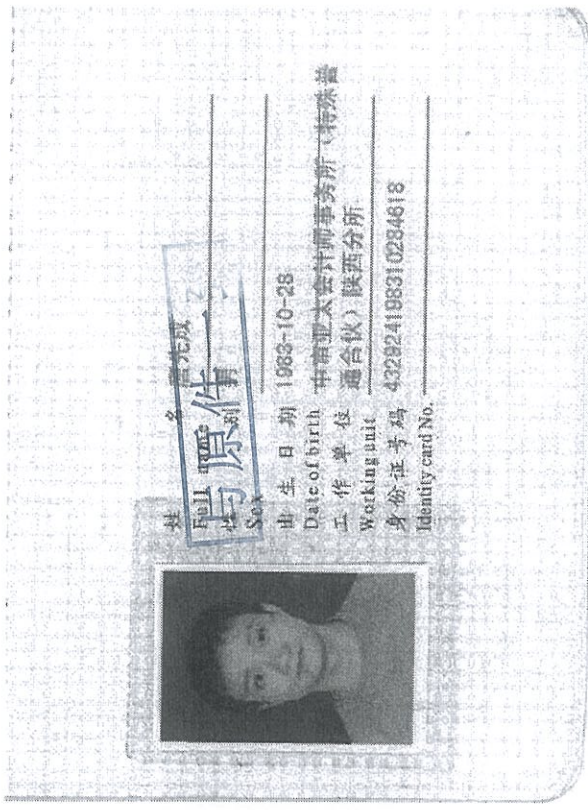 姓 名
Full name
性 别 男
Sex
与原件一
出 生 日 期 1983-10-28
Date of birth
工 作 单 位 中审亚太会计师事务所（特殊普
通合伙）陕西分所
Working unit
身份证号码 432924198310284618
Identity card No.